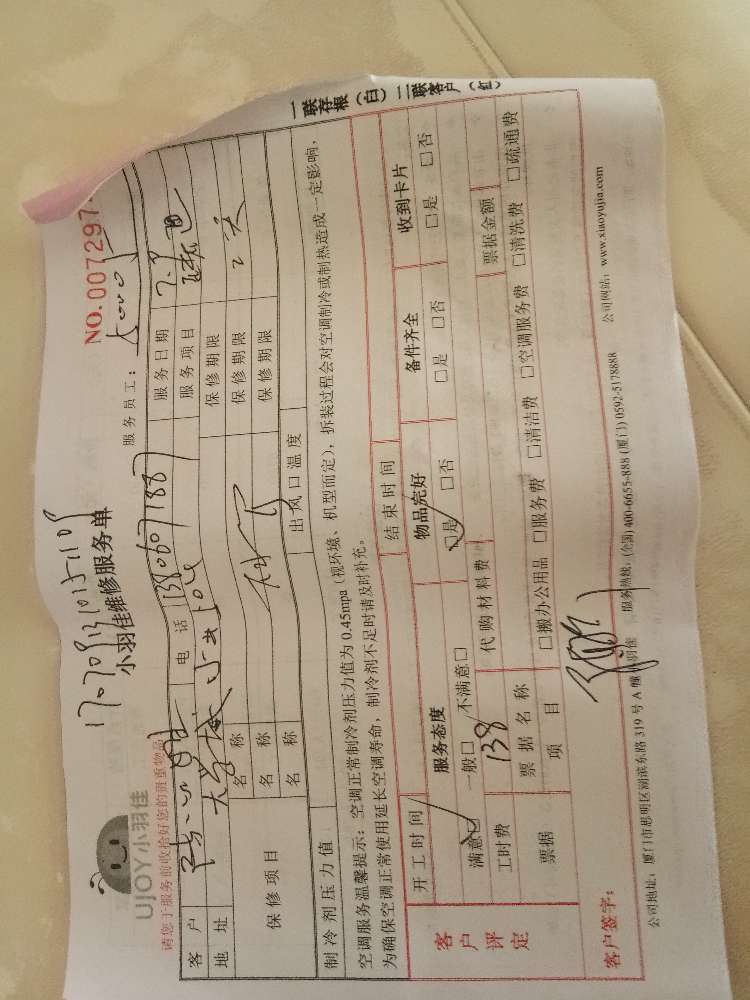 UJOY小羽佳
17070913101511109
小羽佳维修服务单
NO.007297
请您于服务前收拾好您的贵重物品
服务员工：
客户 电话 13806071887 服务日期 7.9
地址 服务项目
保修项目 名称 保修期限
名称 保修期限
名称 保修期限
制冷剂压力值 出风口温度
空调服务温馨提示：空调正常制冷剂压力值为 0.45mpa（视环境、机型而定），拆装过程会对空调制冷或制热造成一定影响，
为确保空调正常使用延长空调寿命，制冷剂不足时请及时补充。
开工时间 结束时间
客户评定 服务态度 物品完好 备件齐全 收到卡片
满意□ 一般□ 不满意□ □是 □否 □是 □否 □是 □否
工时费 138 代购材料费 票据金额
票据 票据名称
项目 □搬办公用品 □服务费 □清洁费 □空调服务费 □清洗费 □疏通费
客户签字：
公司地址：厦门市思明区湖滨东路 319 号 A 幢 小羽佳 服务热线：(全国) 400-6655-888 (厦门) 0592-5178888 公司网站：www.xiaoyujia.com
一联存根（白）二联客户（红）